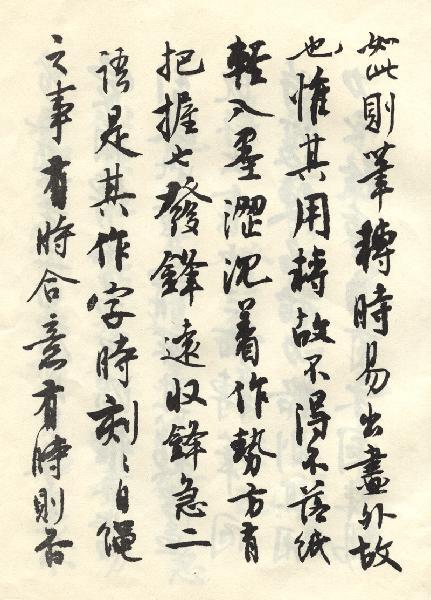 如此則筆轉時易出畫外故
也惟其用轉故不得不落紙
輕入墨澀沉着作勢方有
把握七發鋒遠收鋒急二
語是其作字時刻〻自繩
之事有時合意有時則否